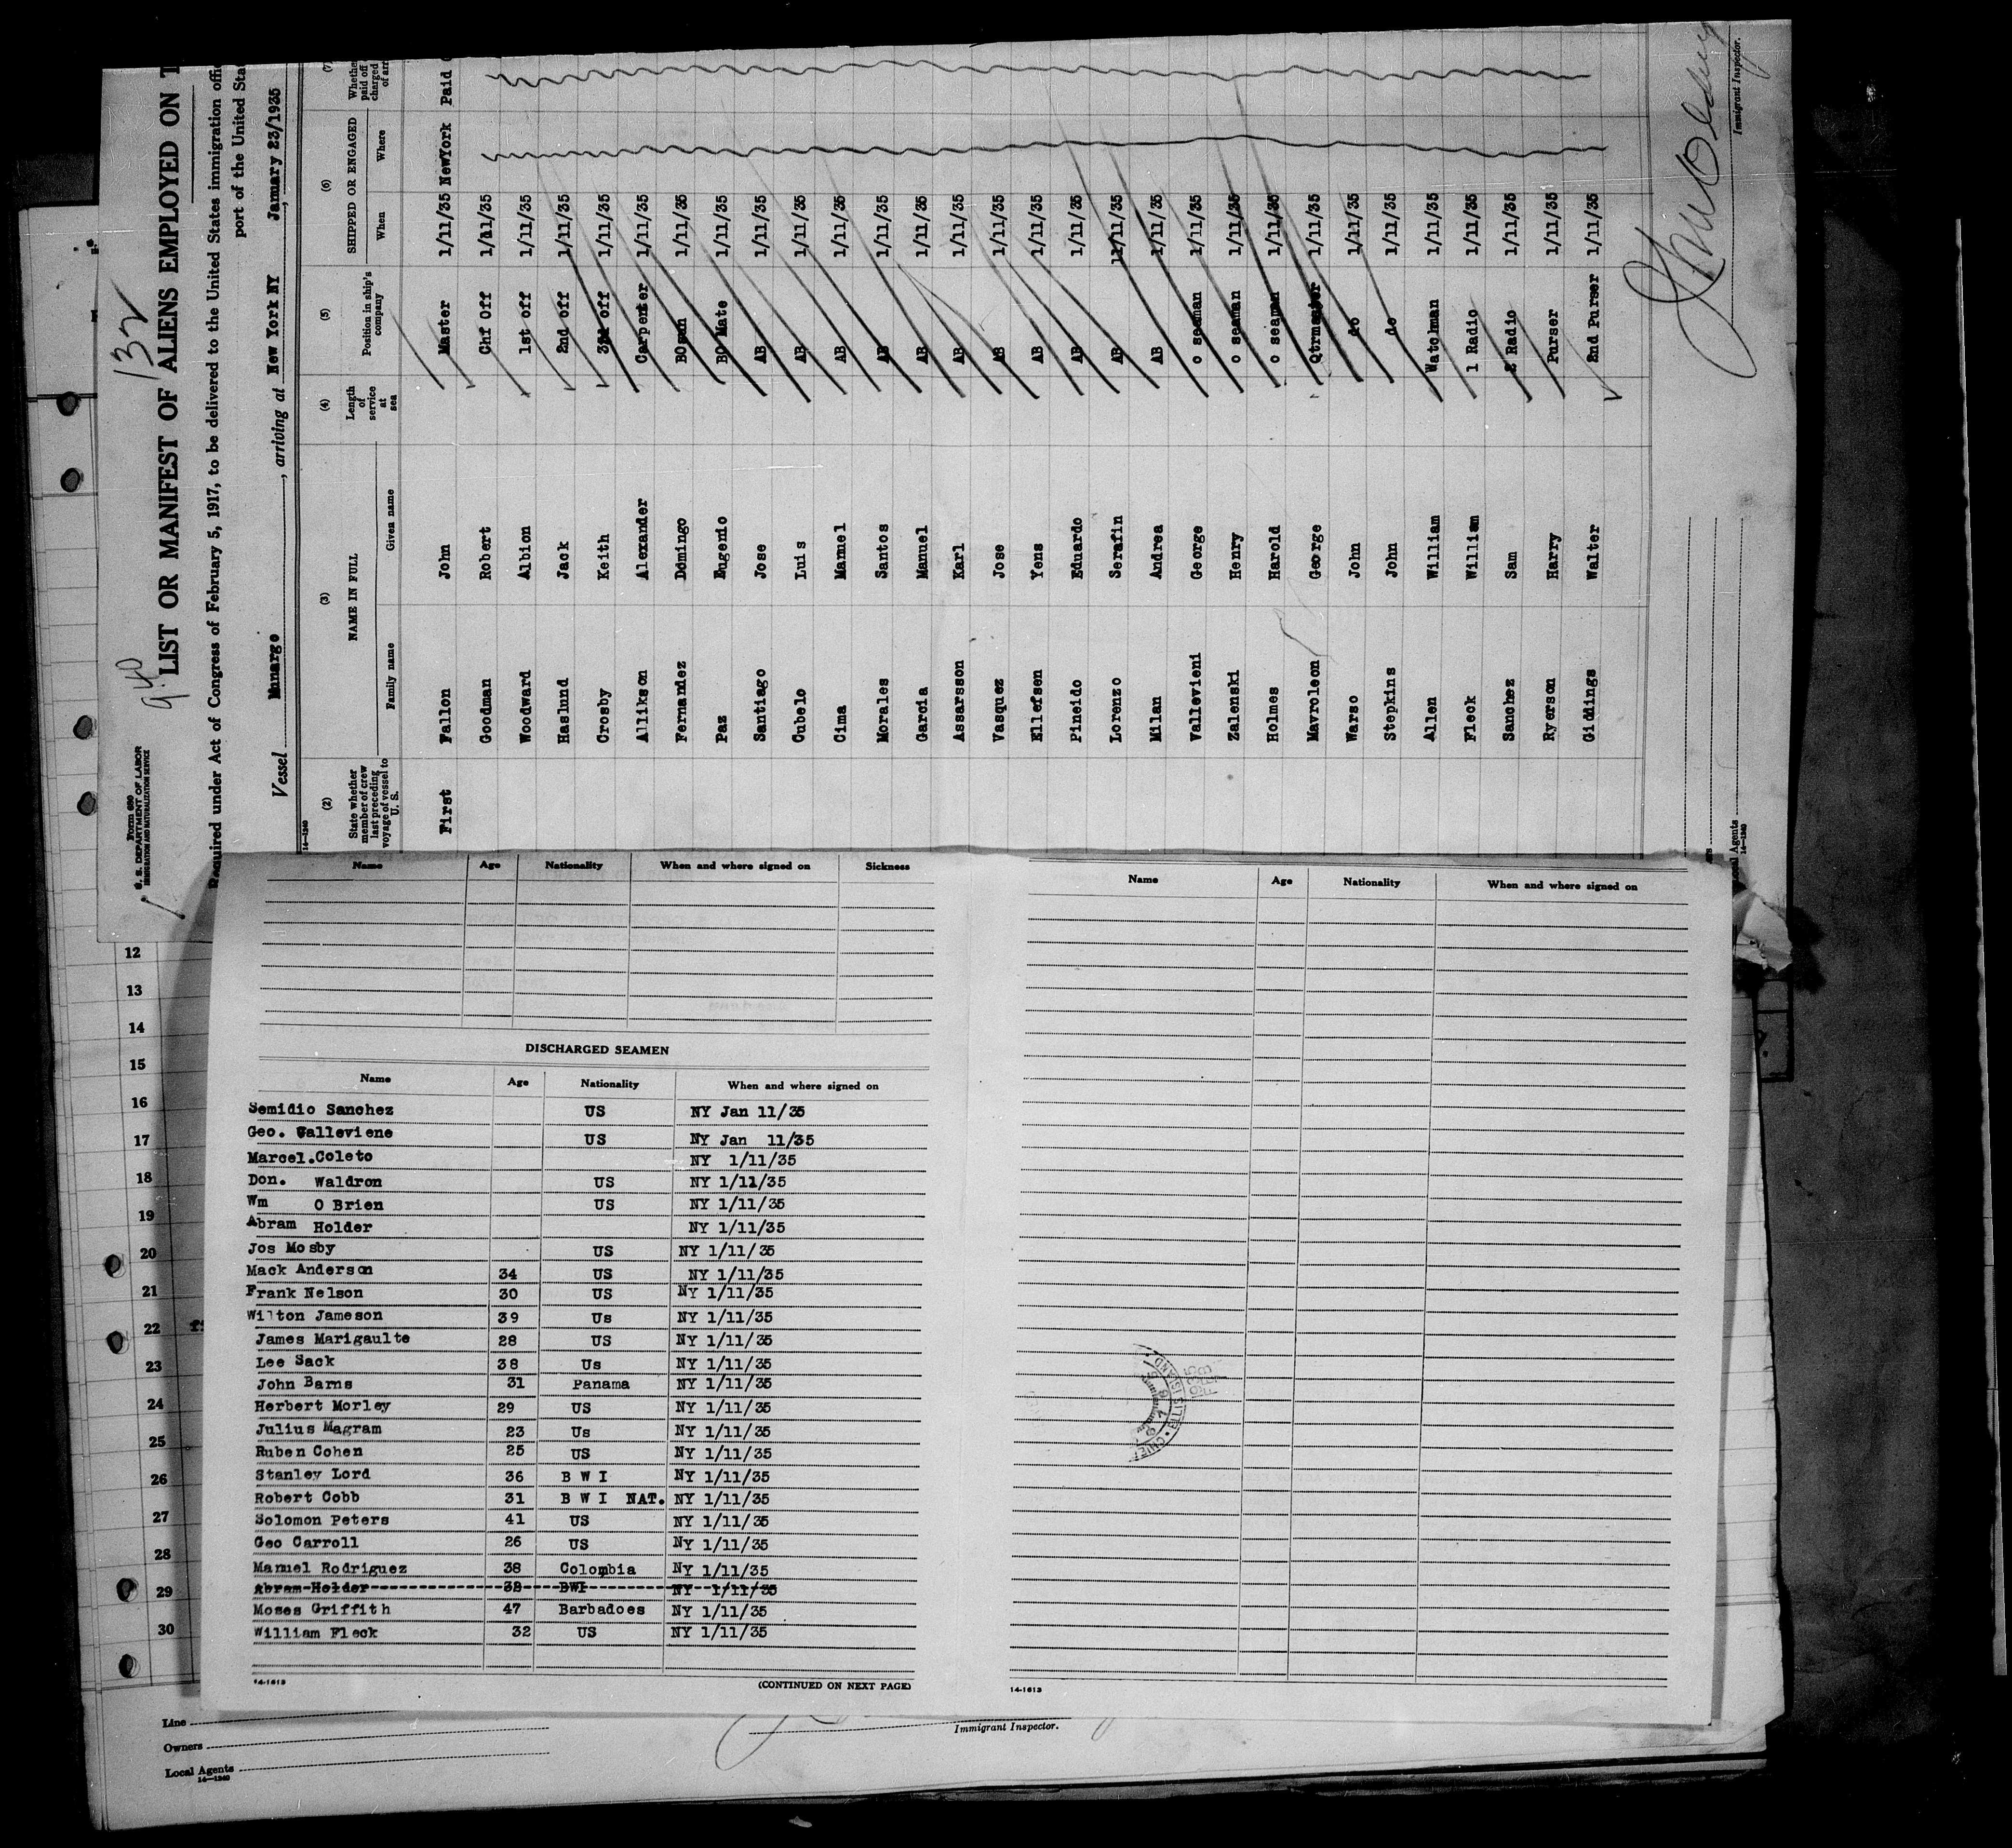 132
9.40
Form 680
U. S. DEPARTMENT OF LABOR
IMMIGRATION AND NATURALIZATION SERVICE
LIST OR MANIFEST OF ALIENS EMPLOYED ON T
Required under Act of Congress of February 5, 1917, to be delivered to the United States immigration offic
port of the United Sta
Vessel Munargo, arriving at New York NY January 23/1935
14—1240
(2) (3) (4) (5) (6) (7)
State whether member of crew last preceding voyage of vessel to U. S.
NAME IN FULL
Family name Given name
Length of service at sea
Position in ship's company
SHIPPED OR ENGAGED
When Where
Whethe paid off charged of arr
First Fallon John Master 1/11/35 NewYork Paid
Goodman Robert Chf Off 1/11/35
Woodward Albion 1st off 1/11/35
Haslund Jack 2nd off 1/11/35
Crosby Keith 3rd off 1/11/35
Allikson Alexander Carpenter 1/11/35
Fernandez Domingo BOsan 1/11/35
Paz Eugenio BO Mate 1/11/35
Santiago Jose AB 1/11/35
Cubelo Luis AB 1/11/35
Cima Manuel AB 1/11/35
Morales Santos AB 1/11/35
Garcia Manuel AB 1/11/35
Assarsson Karl AB 1/11/35
Vasquez Jose AB 1/11/35
Ellefsen Yens AB 1/11/35
Pineido Eduardo AB 1/11/35
Lorenzo Serafin AB 11/11/35
Milan Andrea AB 1/11/35
Vallevieni George O seaman 1/11/35
Zalenski Henry O seaman 1/11/35
Holmes Harold O seaman 1/11/35
Mavroleon George Qtrmaster 1/11/35
Warso John do 1/11/35
Stepkins John do 1/11/35
Allen William Watchman 1/11/35
Fleck William 1 Radio 1/11/35
Sanchez Sam 2 Radio 1/11/35
Ryerson Harry Purser 1/11/35
Giddings Walter 2nd Purser 1/11/35
Immigrant Inspector.
ocal Agents
14—1240
Name Age Nationality When and where signed on Sickness
DISCHARGED SEAMEN
Name Age Nationality When and where signed on
Semidio Sanchez US NY Jan 11/35
Geo. Valleviene US NY Jan 11/35
Marcel.Coleto NY 1/11/35
Don. Waldron US NY 1/11/35
Wm O Brien US NY 1/11/35
Abram Holder NY 1/11/35
Jos Mosby US NY 1/11/35
Mack Anderson 34 US NY 1/11/35
Frank Nelson 30 US NY 1/11/35
Wilton Jameson 39 Us NY 1/11/35
James Marigaulte 28 US NY 1/11/35
Lee Sack 38 Us NY 1/11/35
John Barns 31 Panama NY 1/11/35
Herbert Morley 29 US NY 1/11/35
Julius Magram 23 Us NY 1/11/35
Ruben Cohen 25 US NY 1/11/35
Stanley Lord 36 B W I NY 1/11/35
Robert Cobb 31 B W I NAT. NY 1/11/35
Solomon Peters 41 US NY 1/11/35
Geo Carroll 26 US NY 1/11/35
Manuel Rodriguez 38 Colombia NY 1/11/35
Abram Holder 32 BWI NY 1/11/35
Moses Griffith 47 Barbadoes NY 1/11/35
William Fleck 32 US NY 1/11/35
14-1613
(CONTINUED ON NEXT PAGE)
Name Age Nationality When and where signed on
14-1613
12
13
14
15
16
17
18
19
20
21
22
23
24
25
26
27
28
29
30
Line
Owners
Local Agents
14—1240
Immigrant Inspector.